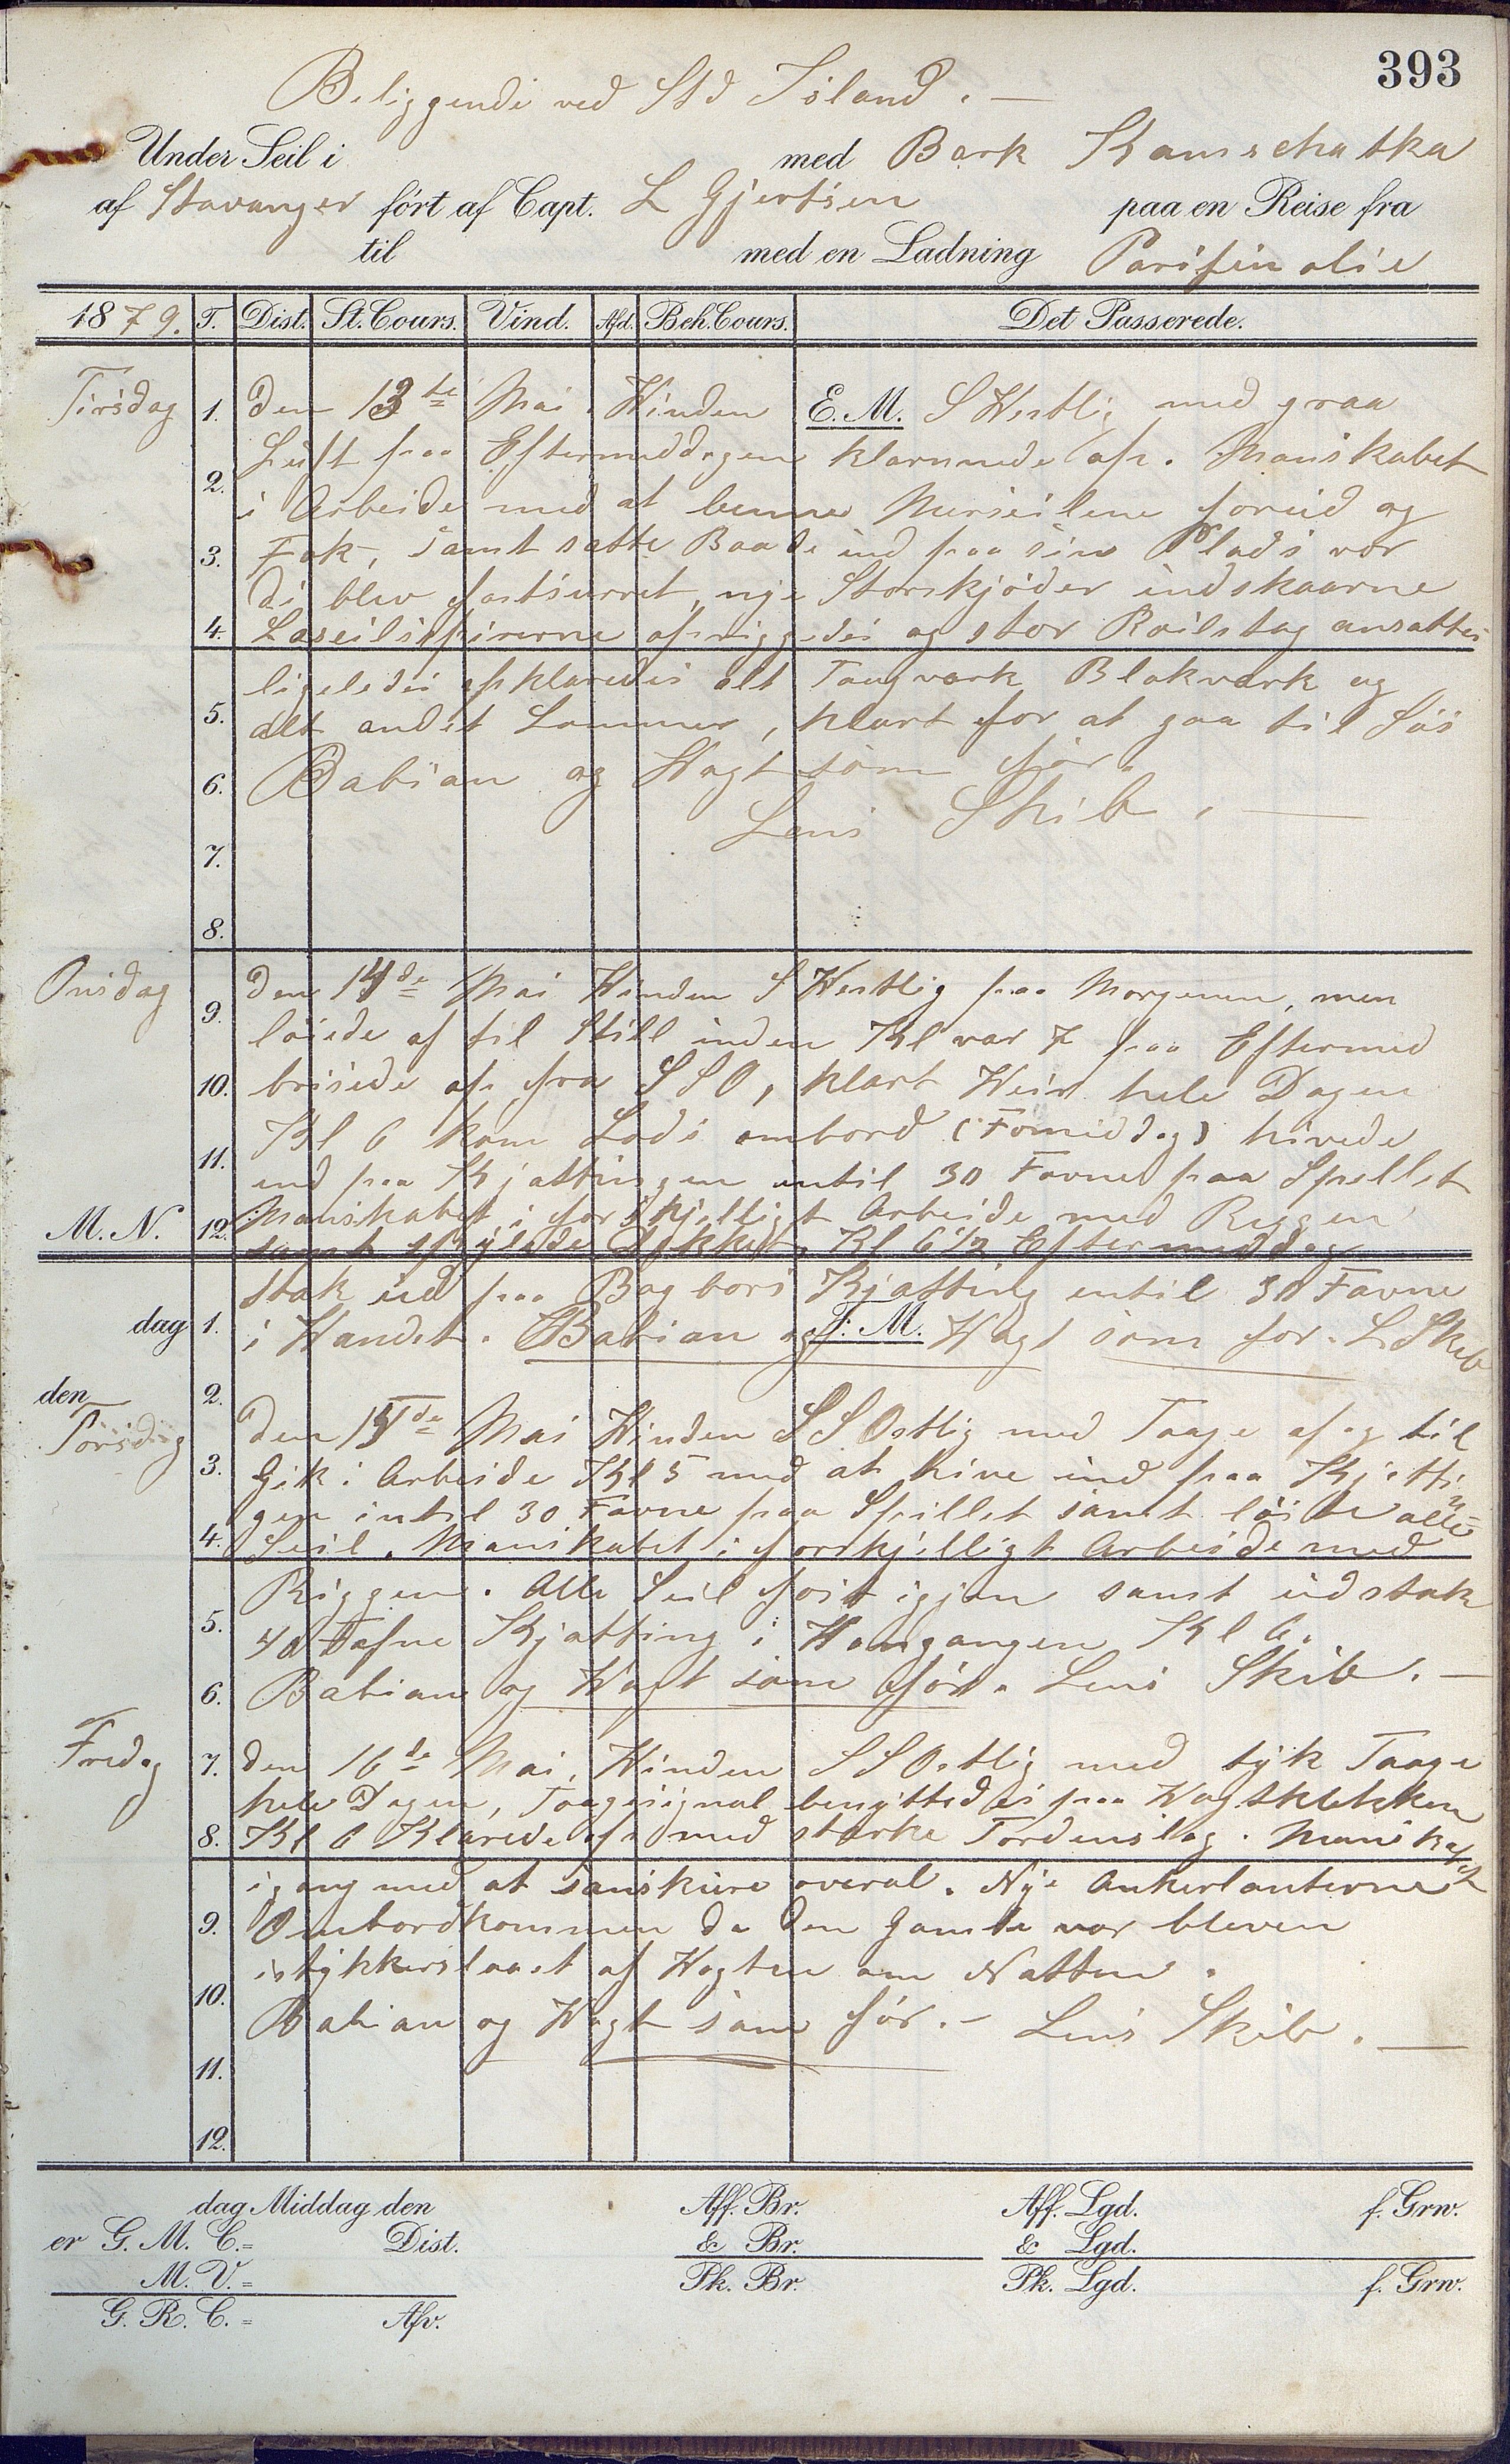 393
Beliggende ved Std Island. —
Under Seil i med Bark Kamschatka
af Stavanger ført af Capt. L Gjertsen paa en Reise fra
til med en Ladning Parifin olie
1879. T. Dist. St. Cours. Vind. Afd. Beh. Cours. Det Passerede.
Tirsdag 1. Den 13de Mai. Winden E. M. S Westlig med graa
2. Luft paa Eftermiddagen klarnede op. Manskabet
i Arbeide med at benne Merseilene forud og
3. Fok, samt satte Baade ind paa sin Plads vor
di blev fastsurret, nye Storskjøder indskaarne
4. Læseilsspirerne opriggedes og stor Roilstag ansattes
ligeledes opklaredes alt Taugværk Blokværk og
5. alt andet Lammer, klart for at gaa til Søs
6. Babian og Wagt som før.
Lens Skib. —
7.
8.
Onsdag 9. Den 14de Mai Winden S Westlig paa Morgenen, men
løiede af til Still inden Kl var 7 paa Eftermid
10. brisede op fra S S O, klart Weir hele Dagen
Kl 6 kom Lods ombord (Formiddag) hivede
11. ind paa Kjættingen intil 30 Favne paa Spellet
M. N. 12. Manskabet i forskjelligt Arbeide med Riggen
samt spylede Dækket. Kl 6 1/2 Eftermiddag
stak ud paa Bagbors Kjætting intil 30 Favne
dag 1. i Wandet. Babian og F. M. Wagt som før. L Skib
den 2.
Torsdag Den 15de Mai Winden S S Ostlig med Taage af og til
3. Gik i Arbeide Kl 5 med at hive ind paa Kjættin
gen intil 30 Favne paa Spillet samt løste alle
4. Seil. Manskabet i forskjelligt Arbeide med
Riggen. Alle Seil fast igjen samt udstak
5. 40 Fafne Kjætting i Wangangen Kl 6.
6. Babian og Wagt som før. Lens Skib. —
Fredag 7. Den 16de Mai, Winden S S Ostlig med tyk Taage
hele Dagen, Taagesignal benyttedes paa Wagtklokken
8. Kl 6 Klarede op med stærke Tordenslag. Manskabet
igang med at sanskure overal. Nye Ankerlanterne
9. Ombordkommen da den Gamle var bleven
istykkerslaaet af Wagten om Natten.
10. Babian og Wagt som før. — Lens Skib. —
11.
12.
dag Middag den Aff. Br. Aff. Lgd. f. Grw.
er G. M. C. = Dist. & Br. & Lgd.
M. V. = Pk. Br. Pk. Lgd. f. Grw.
G. R. C. = Afv.